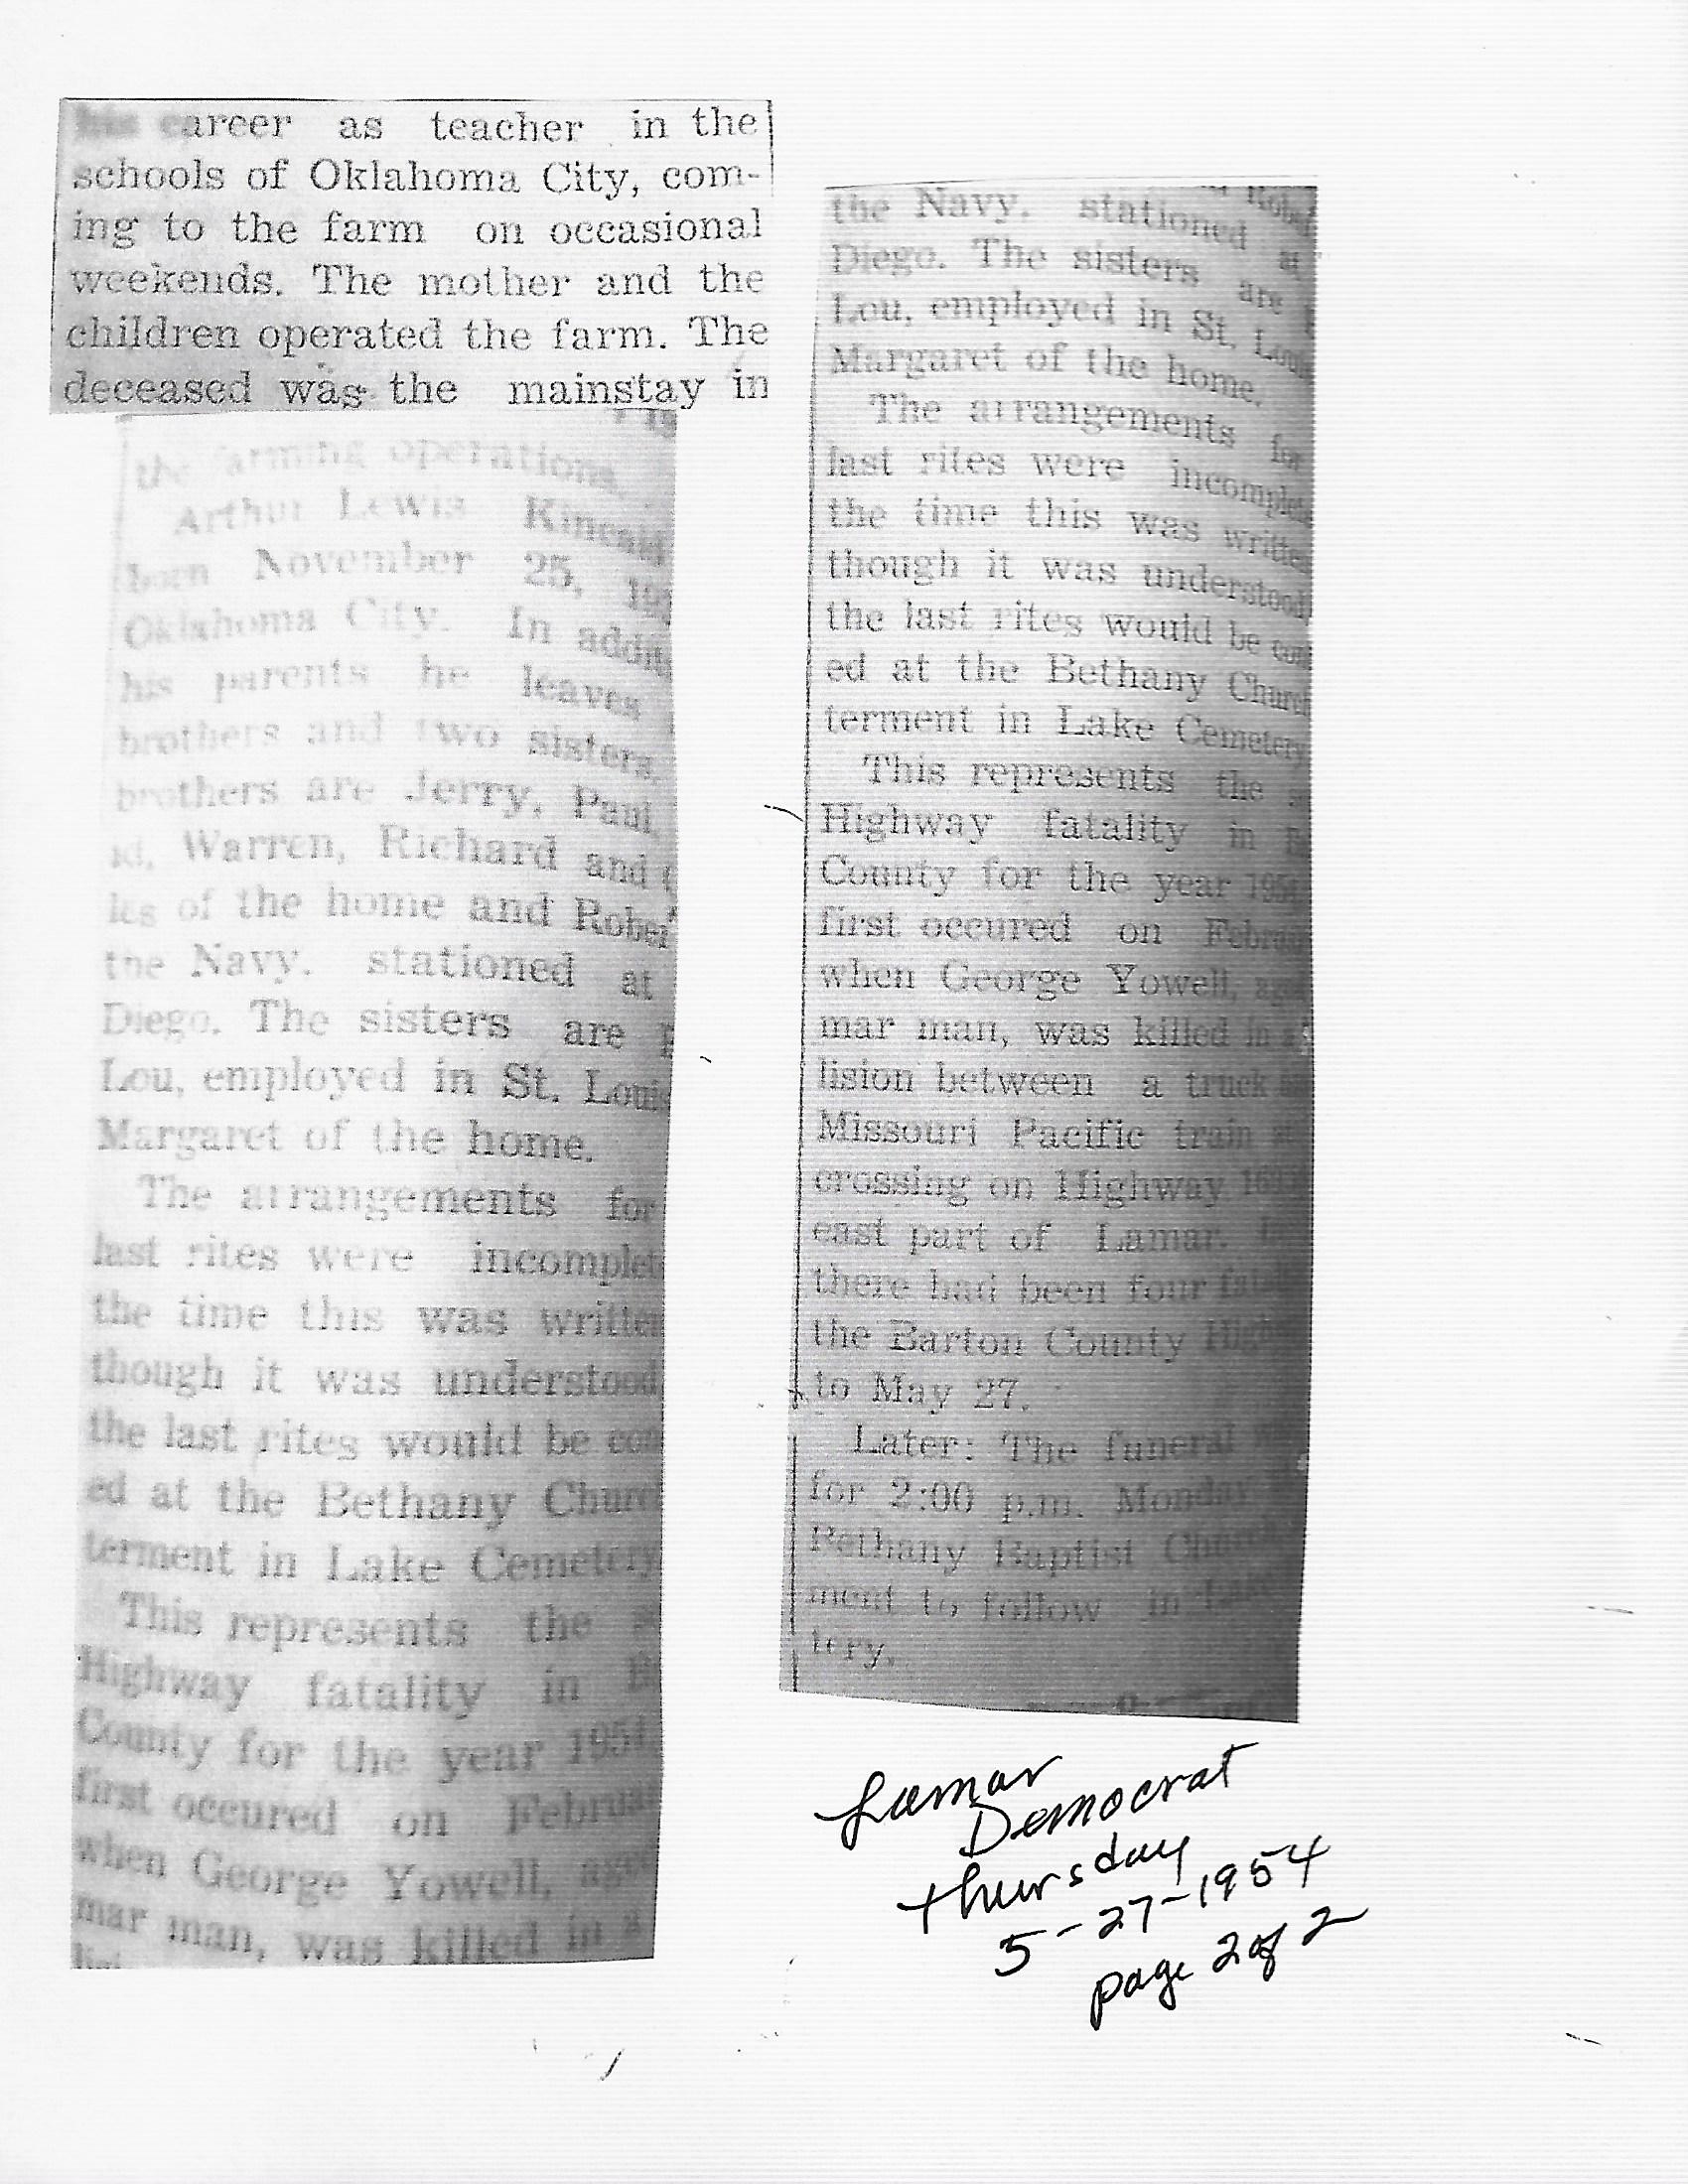 his career as teacher in the
schools of Oklahoma City, com-
ing to the farm on occasional
weekends. The mother and the
children operated the farm. The
deceased was the mainstay in
the farming operations.
Arthur Lewis Kincaid
born November 25,
Oklahoma City. In
his parents he leaves
brothers and two sisters.
brothers are Jerry, Paul,
Warren, Richard and
of the home and
the Navy, stationed at
Diego. The sisters are
Lou, employed in St.
Margaret of the home.
The arrangements for
last rites were
the time this was
though it was understood
the last rites would be
ed at the Bethany
terment in Lake Cemetery
This represents the
Highway fatality in
County for the year 1954
first occured on
when George Yowell,
mar man, was killed in
the Navy, stationed at
Diego. The sisters are
Lou, employed in St.
Margaret of the home.
The arrangements for
last rites were
the time this was
though it was understood
the last rites would be
ed at the Bethany Church
terment in Lake Cemetery
This represents the
Highway fatality in
County for the year
first occured on
when George Yowell,
mar man, was killed in
lision between a truck
Missouri Pacific train
crossing on Highway
east part of Lamar.
there had been four
the Barton County
to May 27.
Later: The funeral
for 2:00 p.m.
Bethany Baptist
ment to follow in
tery.
Lamar
Democrat
thursday
5-27-1954
page 2 of 2